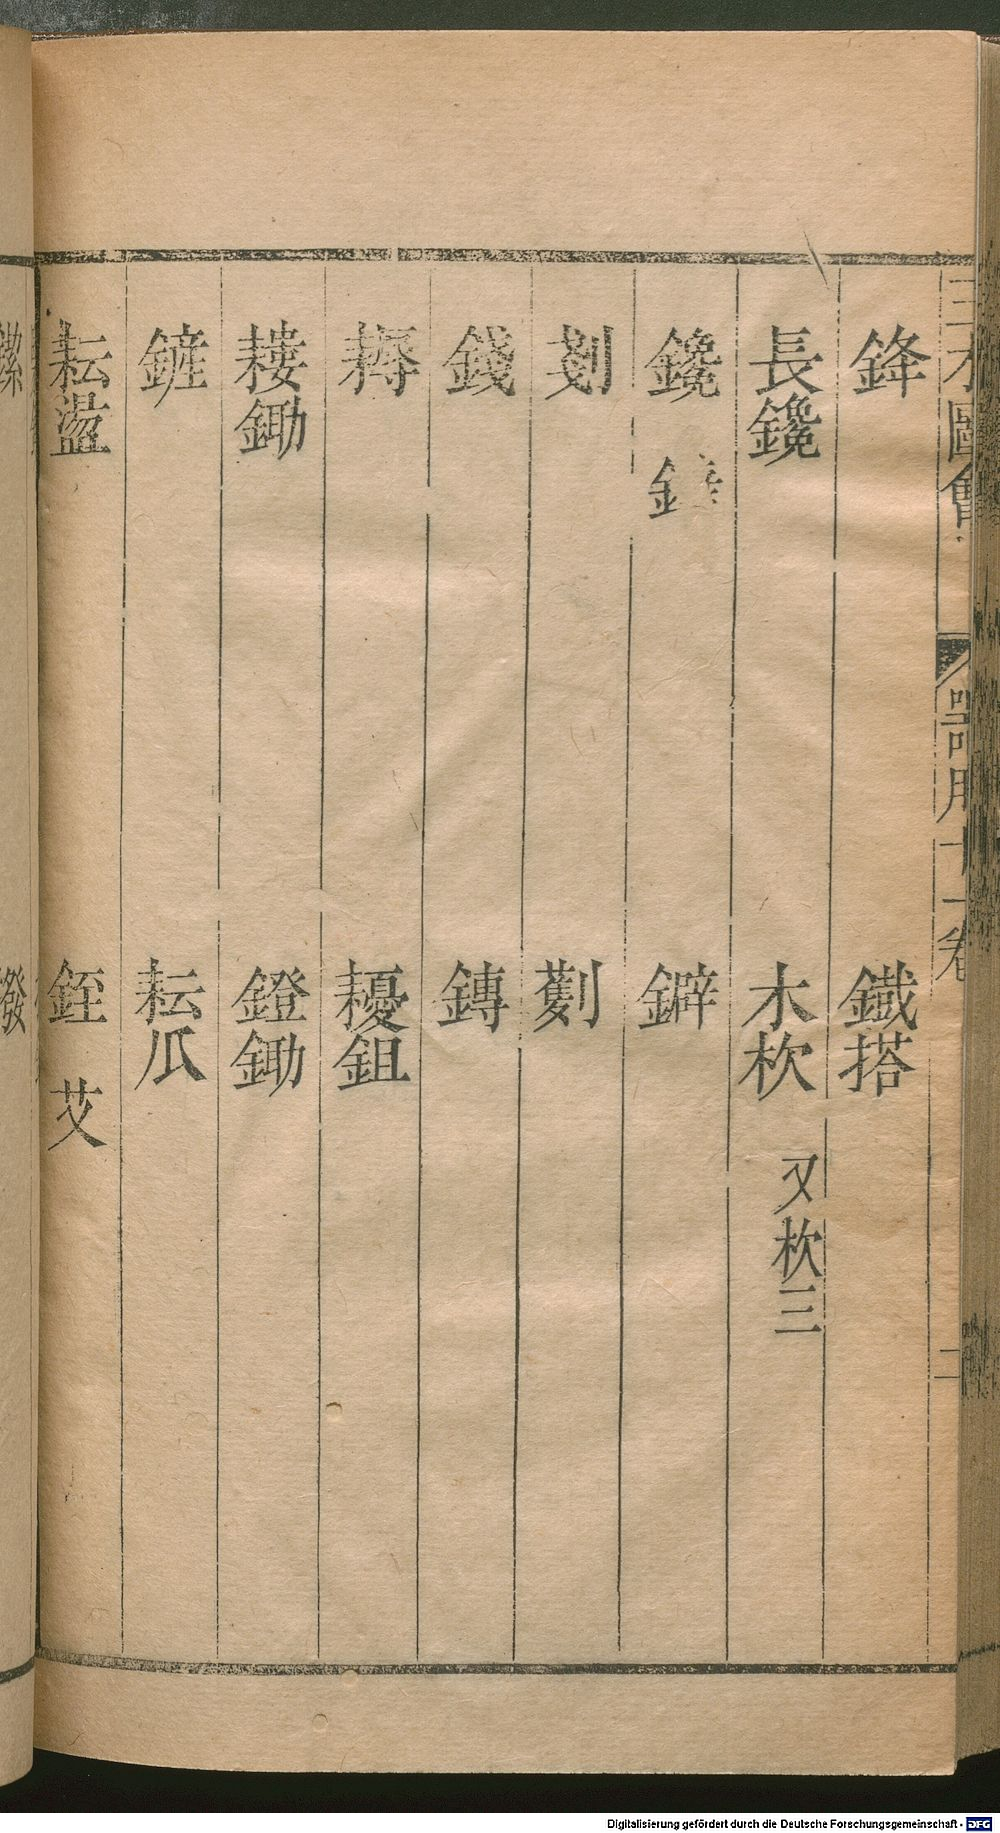 三才圖會 器用十一卷 二
鋒 鐵搭
長鑱 木杴 又杴三
鑱 鐴
剗 劐
錢 鎛
耨 耰鉏
耬鋤 鐙鋤
鏟 耘爪
耘盪 銍 艾
Digitalisierung gefördert durch die Deutsche Forschungsgemeinschaft - DFG